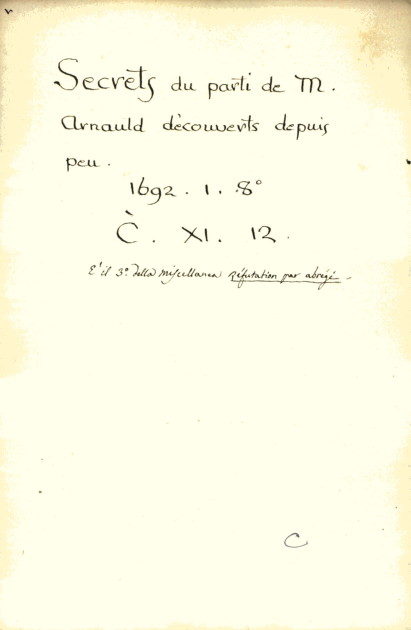 Secrets du parti de M.
Arnauld dècouverts depuis
peu.
1692. 1. 8°
C̀. XI. 12.
E' il 3.° della miscellanea réfutation par abrégé.
C